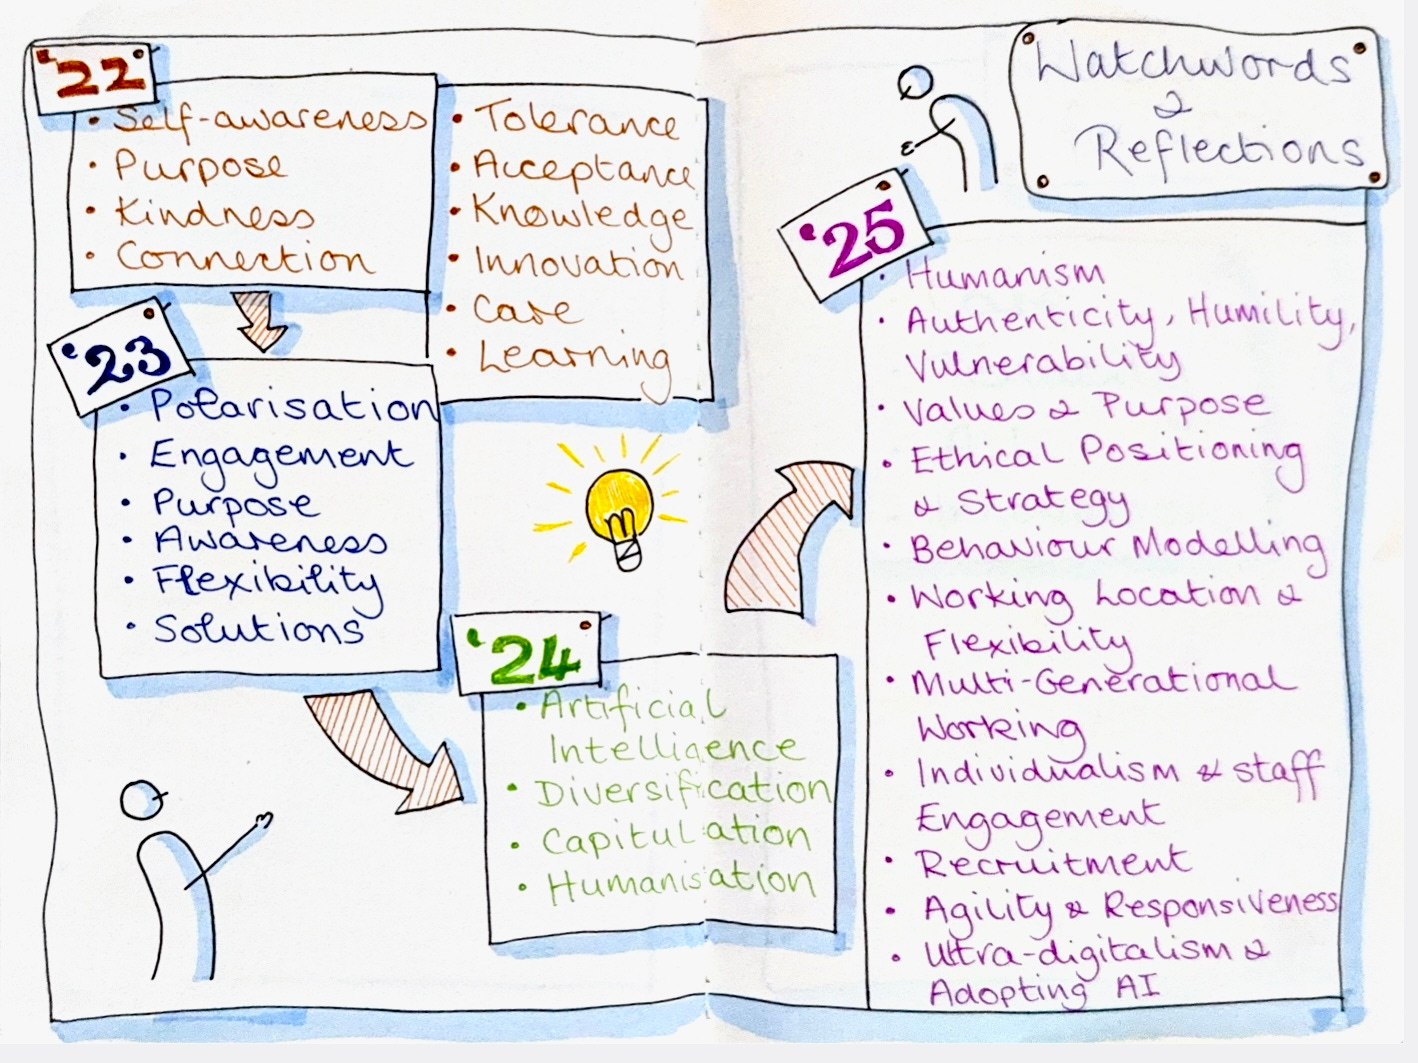 Watchwords
&
Reflections
'22
• Self-awareness
• Purpose
• Kindness
• Connection
• Tolerance
• Acceptance
• Knowledge
• Innovation
• Care
• Learning
'23
• Polarisation
• Engagement
• Purpose
• Awareness
• Flexibility
• Solutions
'24
• Artificial
Intelligence
• Diversification
• Capitulation
• Humanisation
'25
• Humanism
• Authenticity, Humility,
Vulnerability
• Values & Purpose
• Ethical Positioning
& Strategy
• Behaviour Modelling
• Working Location &
Flexibility
• Multi-Generational
Working
• Individualism & Staff
Engagement
• Recruitment
• Agility & Responsiveness
• Ultra-digitalism &
Adopting AI